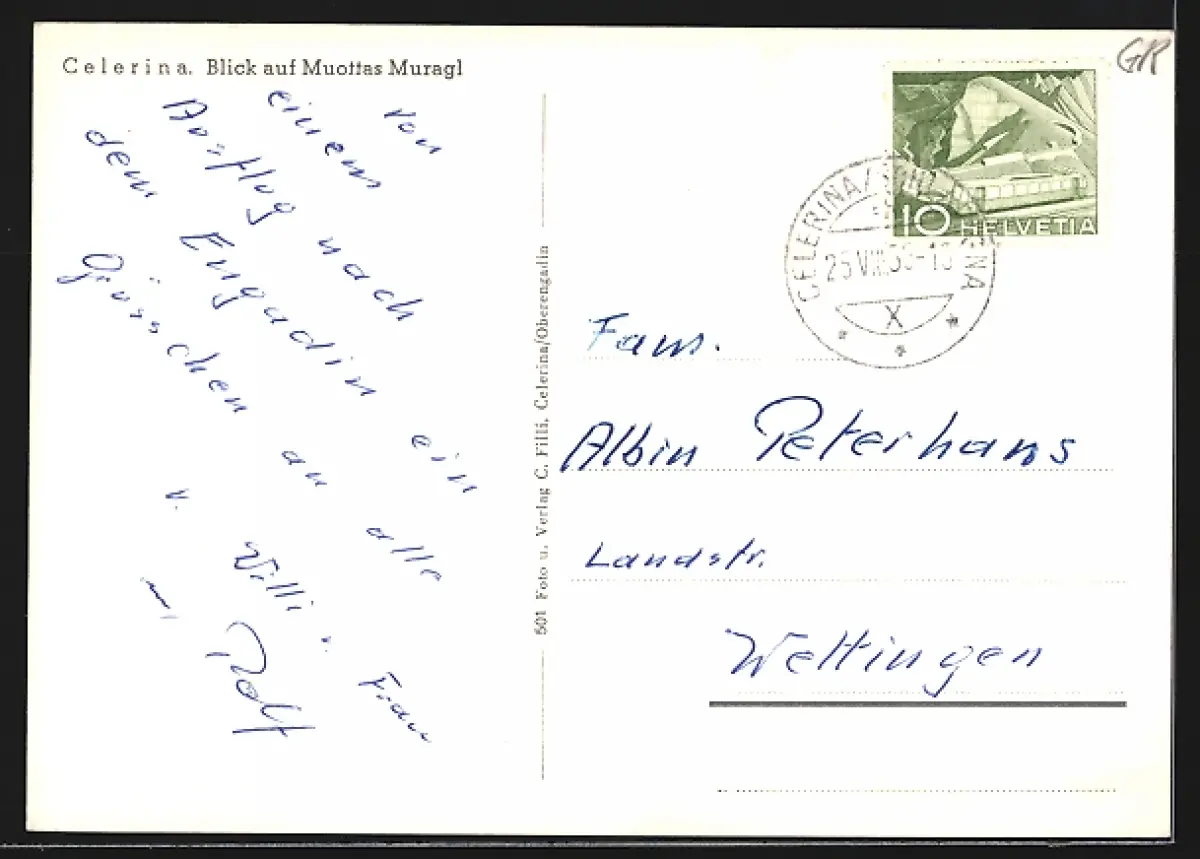 Celerina. Blick auf Muottas Muragl
von
einem
Ausflug nach
dem Engadin ein
Grüsschen an alle
v. Willi u. Frau
Rolf
501 Foto u. Verlag C. Filli, Celerina/Oberengadin
GR
10 HELVETIA
CELERINA/SCHLARIGNA
25.VIII.
X
Fam.
Albin Peterhans
Landstr.
Wettingen